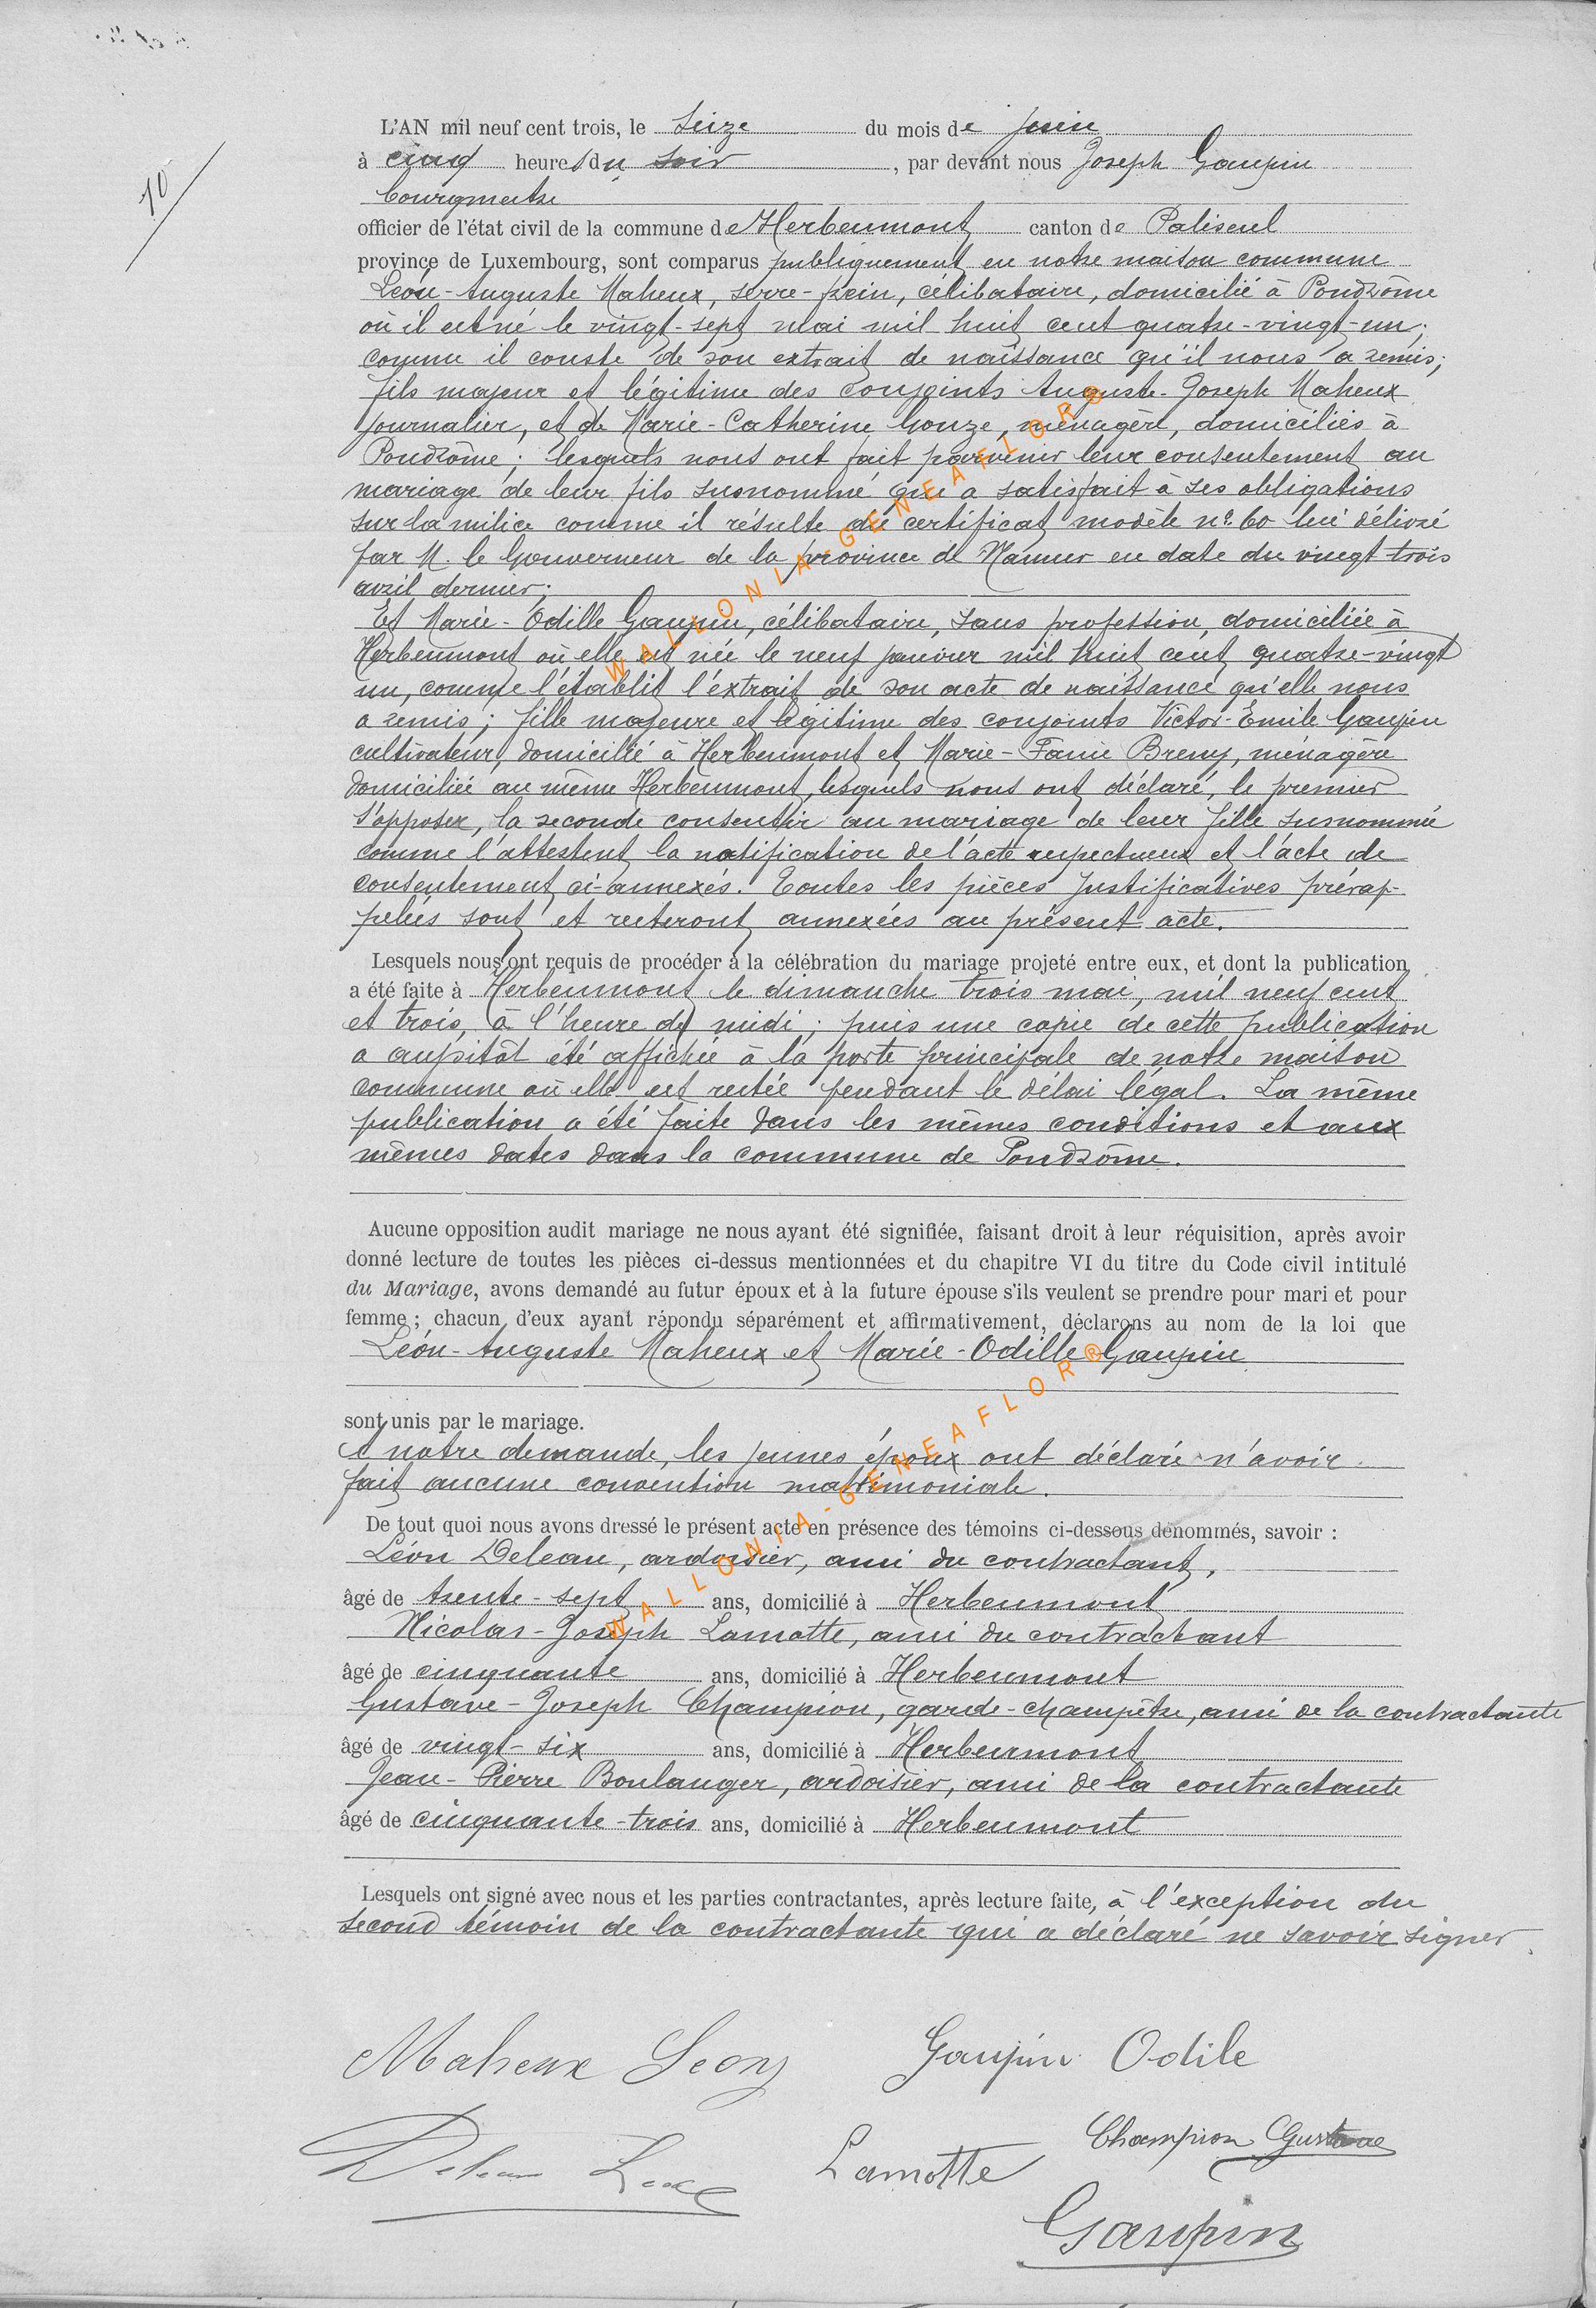 10
L'AN mil neuf cent trois, le Seize du mois de juin
à cinq heures du soir, par devant nous Joseph Gaupin
bourgmestre
officier de l'état civil de la commune de Herbeumont canton de Paliseul
province de Luxembourg, sont comparus publiquement en notre maison commune
Léon-Auguste Maheux, serre-frein, célibataire, domicilié à Pondrôme
où il est né le vingt-sept mai mil huit cent quatre-vingt-un;
comme il conste de son extrait de naissance qu'il nous a remis;
fils majeur et légitime des conjoints Auguste-Joseph Maheux
journalier, et de Marie-Catherine Gouze, ménagère, domiciliés à
Pondrôme; lesquels nous ont fait parvenir leur consentement au
mariage de leur fils susnommé qui a satisfait à ses obligations
sur la milice comme il résulte du certificat modèle n° 60 lui délivré
par M. le Gouverneur de la province de Namur en date du vingt-trois
avril dernier;
Et Marie-Odille Gaupin, célibataire, sans profession, domiciliée à
Herbeumont où elle est née le neuf janvier mil huit cent quatre-vingt
un, comme l'établit l'extrait de son acte de naissance qu'elle nous
a remis; fille majeure et légitime des conjoints Victor-Emile Gaupin
cultivateur, domicilié à Herbeumont et Marie-Fanie Breny, ménagère
domiciliée au même Herbeumont, lesquels nous ont déclaré, le premier
s'opposer, la seconde consentir au mariage de leur fille susnommée
comme l'attestent la notification de l'acte respectueux et l'acte de
consentement ci-annexés. Toutes les pièces justificatives prérap-
pelées sont et resteront annexées au présent acte.
Lesquels nous ont requis de procéder à la célébration du mariage projeté entre eux, et dont la publication
a été faite à Herbeumont le dimanche trois mai, mil neuf cent
et trois, à l'heure de midi; puis une copie de cette publication
a aussitôt été affichée à la porte principale de notre maison
commune où elle est restée pendant le délai légal. La même
publication a été faite dans les mêmes conditions et aux
mêmes dates dans la commune de Pondrôme.
Aucune opposition audit mariage ne nous ayant été signifiée, faisant droit à leur réquisition, après avoir
donné lecture de toutes les pièces ci-dessus mentionnées et du chapitre VI du titre du Code civil intitulé
du Mariage, avons demandé au futur époux et à la future épouse s'ils veulent se prendre pour mari et pour
femme ; chacun d'eux ayant répondu séparément et affirmativement, déclarons au nom de la loi que
Léon-Auguste Maheux et Marie-Odille Gaupin
sont unis par le mariage.
A notre demande, les jeunes époux ont déclaré n'avoir
fait aucune convention matrimoniale.
De tout quoi nous avons dressé le présent acte en présence des témoins ci-dessous dénommés, savoir :
Léon Deleau, ardoisier, ami du contractant,
âgé de trente-sept ans, domicilié à Herbeumont
Nicolas-Joseph Lamotte, ami du contractant
âgé de cinquante ans, domicilié à Herbeumont
Gustave-Joseph Champion, garde-champêtre, ami de la contractante
âgé de vingt-six ans, domicilié à Herbeumont
Jean-Pierre Boulanger, ardoisier, ami de la contractante
âgé de cinquante-trois ans, domicilié à Herbeumont
Lesquels ont signé avec nous et les parties contractantes, après lecture faite, à l'exception du
second témoin de la contractante qui a déclaré ne savoir signer.
Maheux Leon Gaupin Odile
Champion Gustave
Deleau Leon Lamotte
Gaupin
WALLONIA-GENEAFLOR®
WALLONIA-GENEAFLOR®